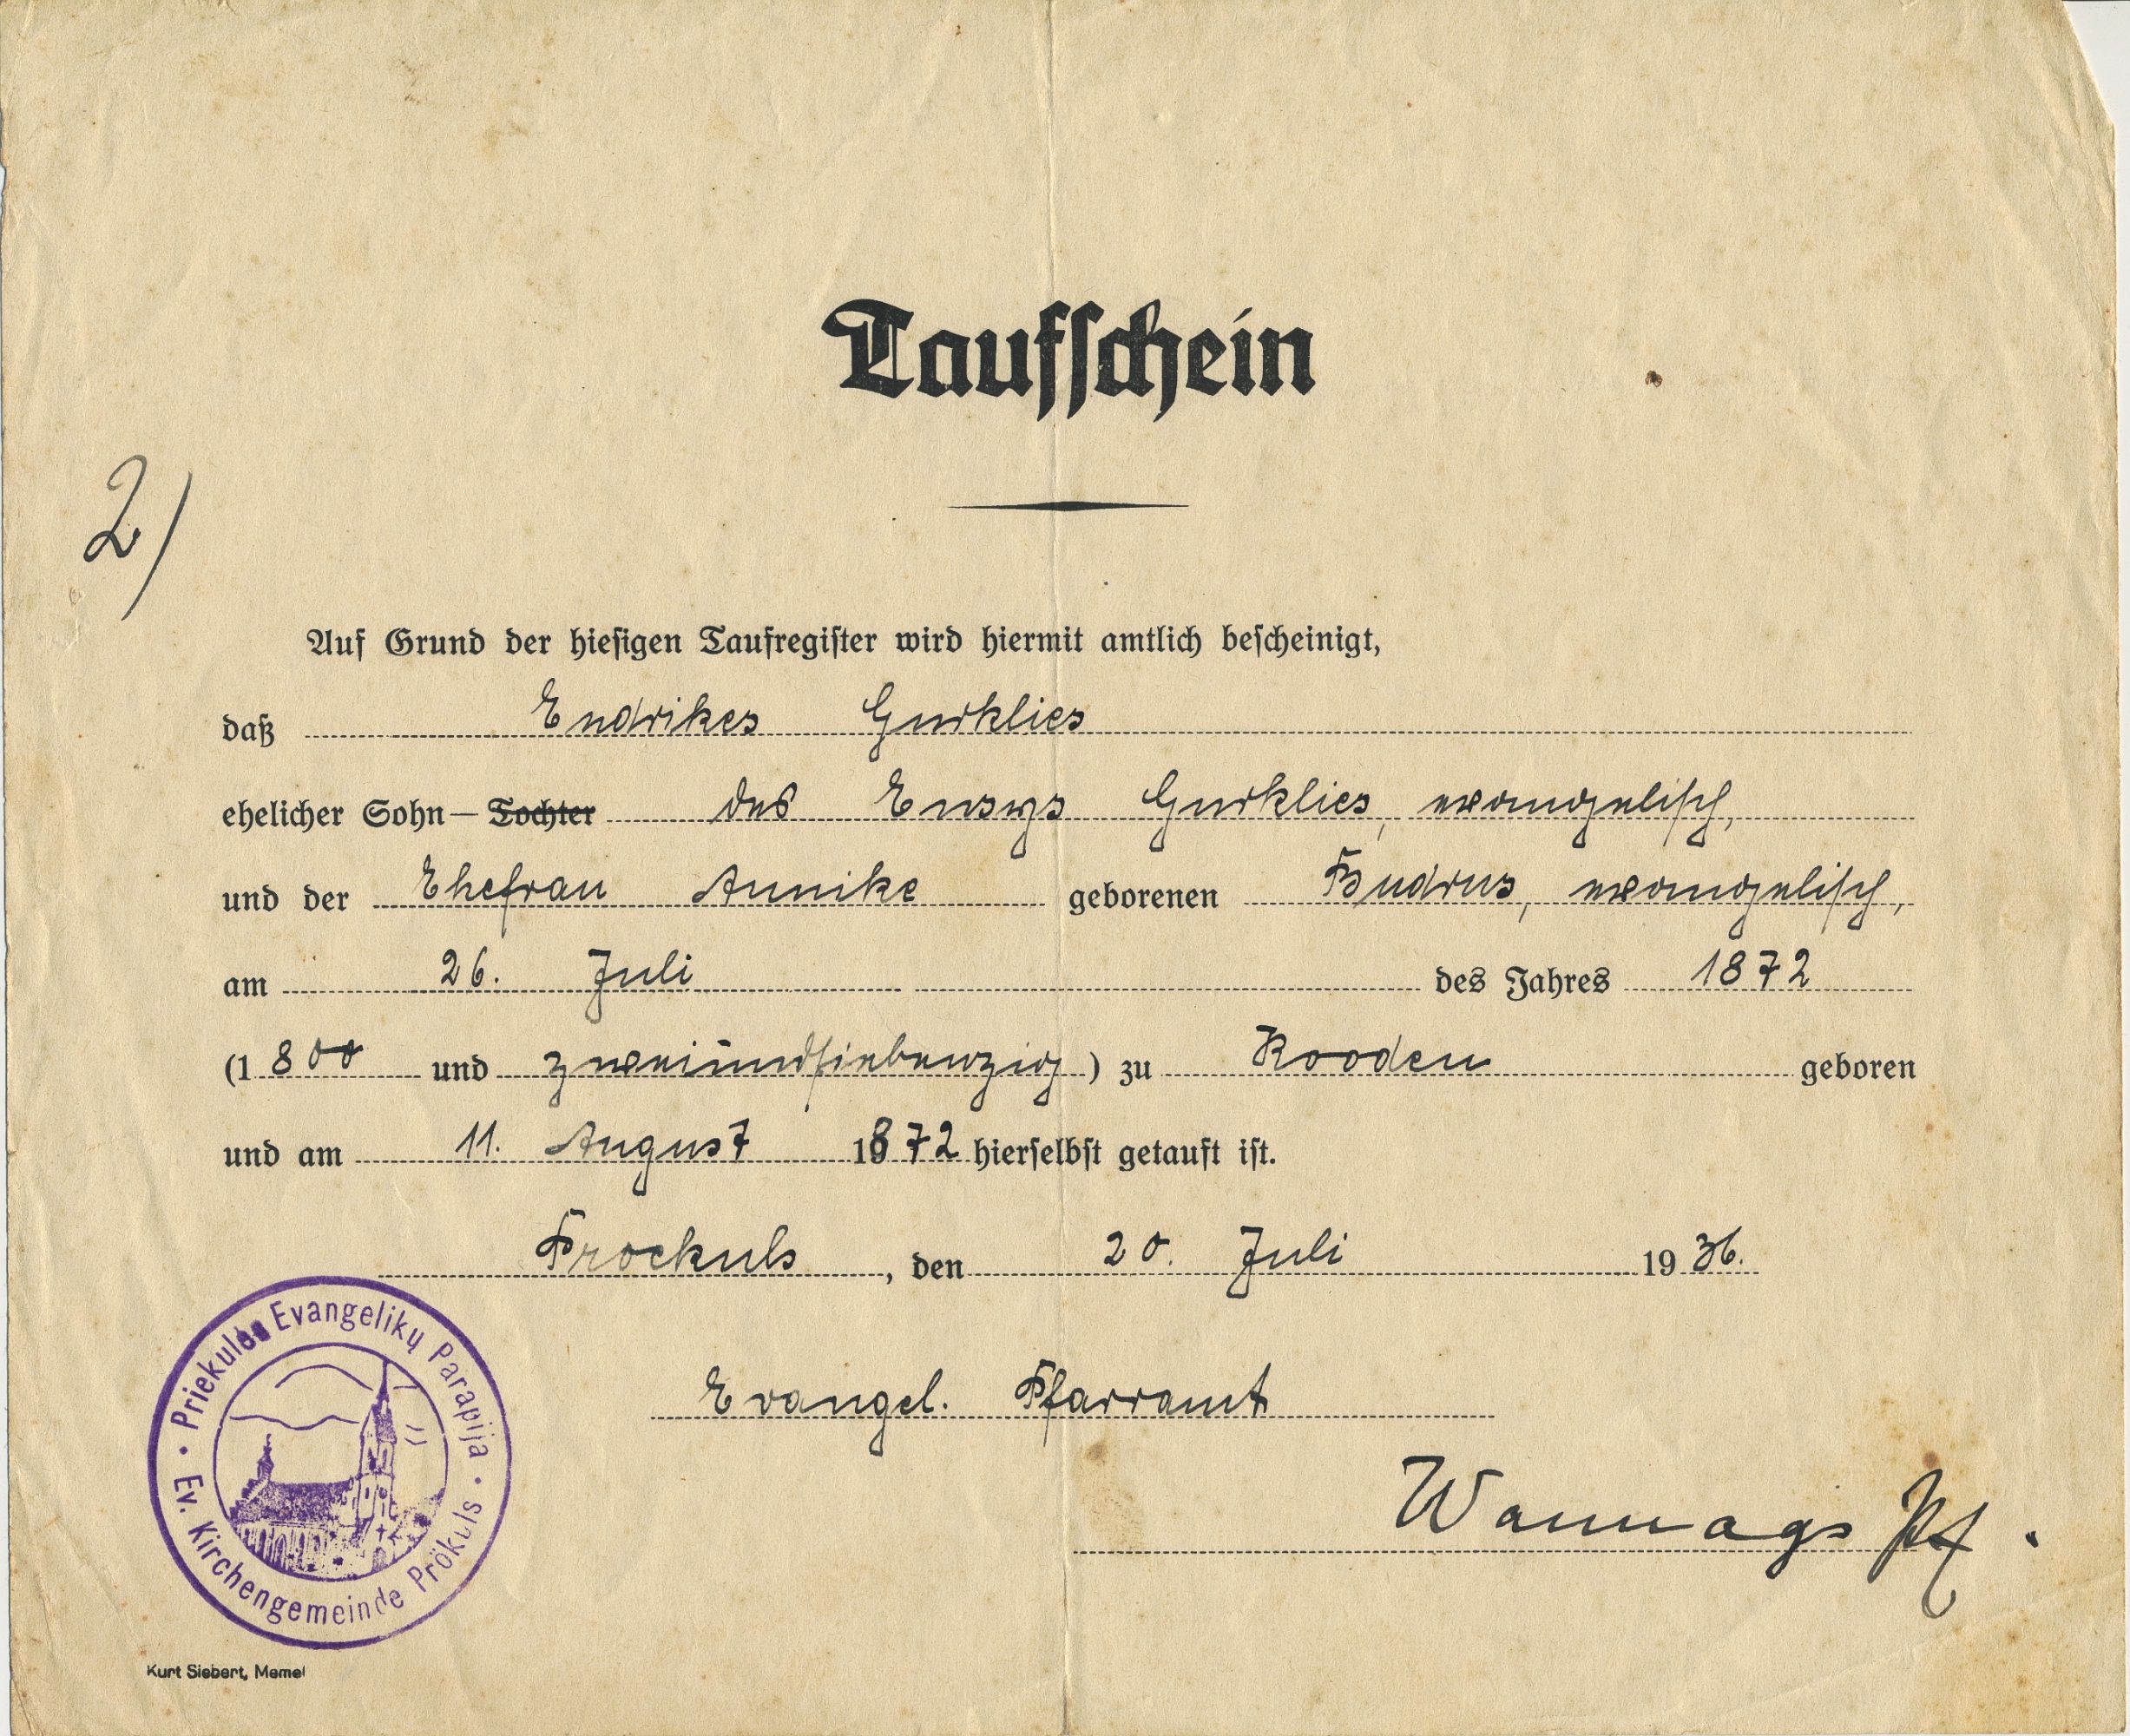 Taufschein
2)
Auf Grund der hiesigen Taufregister wird hiermit amtlich bescheinigt,
daß Endrikes Gurklies
ehelicher Sohn — Tochter des Ensys Gurklies, evangelisch,
und der Ehefrau Annike geborenen Budrus, evangelisch,
am 26. Juli des Jahres 1872
(1800 und zweiundsiebenzig) zu Rooden geboren
und am 11. August 1872 hierselbst getauft ist.
Proekuls, den 20. Juli 1936.
Evangel. Pfarramt
Wannags Pf.
Priekulės Evangelikų Parapija
Ev. Kirchengemeinde Prökuls
Kurt Siebert, Memel